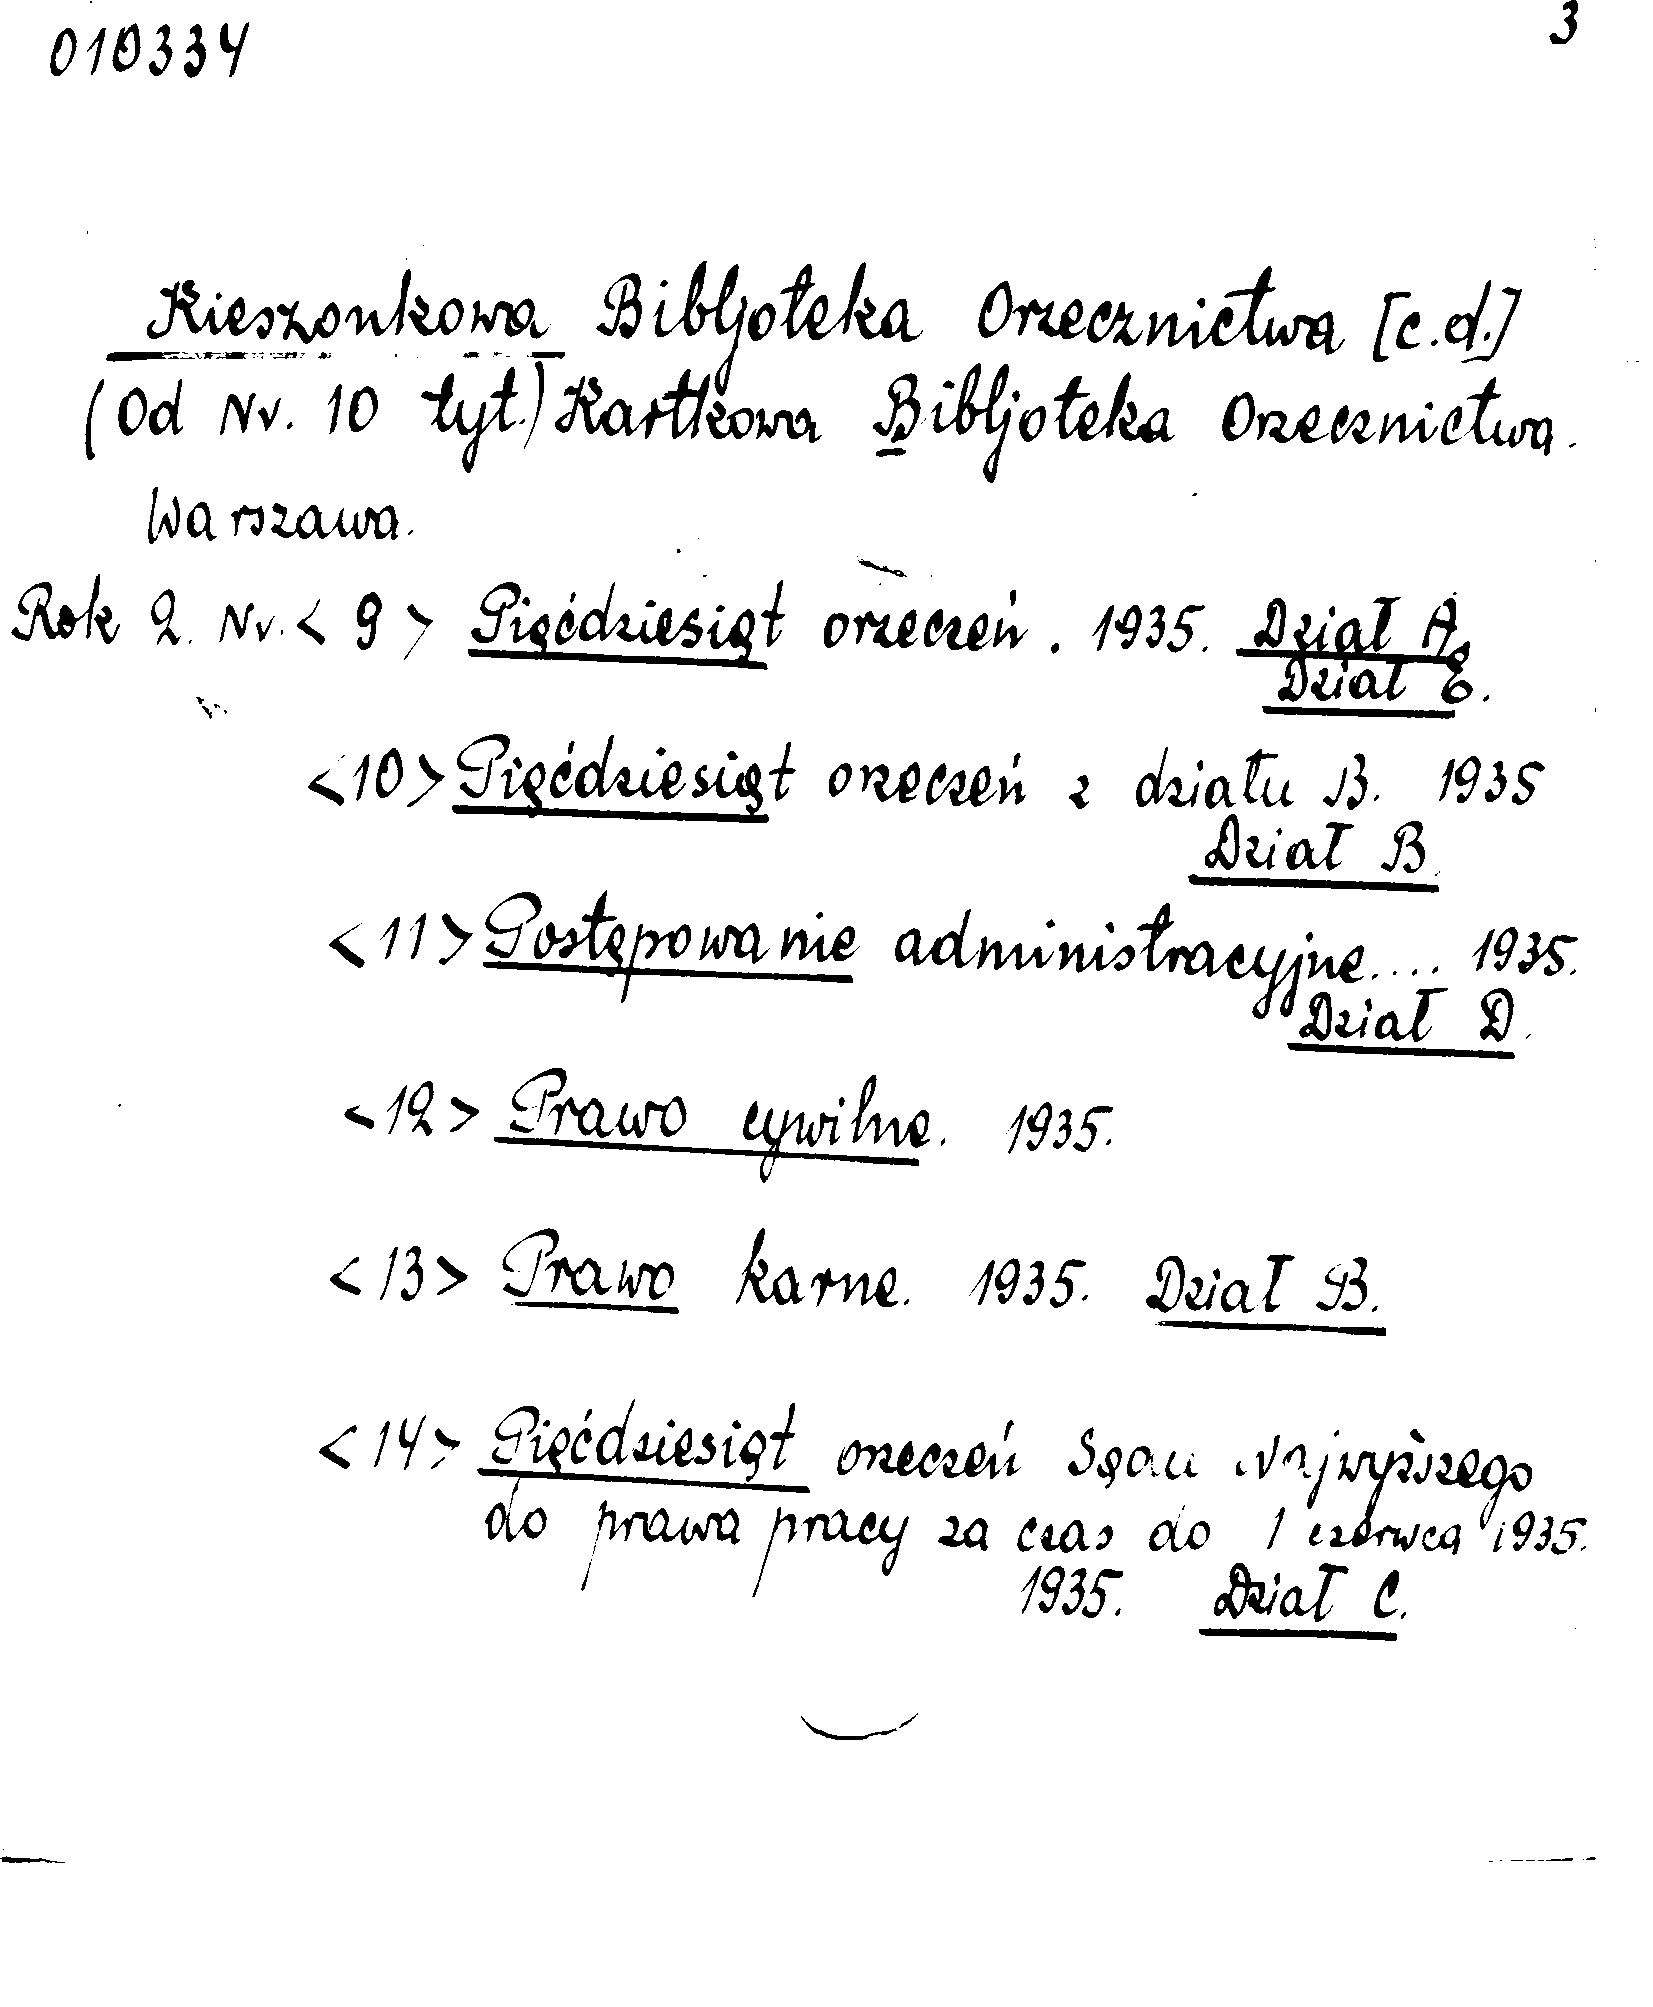 010334
3
Kieszonkowa Bibljoteka Orzecznictwa [c.d.]
(Od Nr. 10 tyt.) Kartkowa Bibljoteka Orzecznictwa.
Warszawa.
Rok 2. Nr. < 9 > Pięćdziesiąt orzeczeń. 1935. Dział A,
Dział E.
<10> Pięćdziesiąt orzeczeń z działu B. 1935
Dział B.
<11> Postępowanie administracyjne.... 1935.
Dział D.
<12> Prawo cywilne. 1935.
<13> Prawo karne. 1935. Dział B.
<14> Pięćdziesiąt orzeczeń Sądu Najwyższego
do prawa pracy za czas do 1 czerwca 1935.
1935. Dział C.